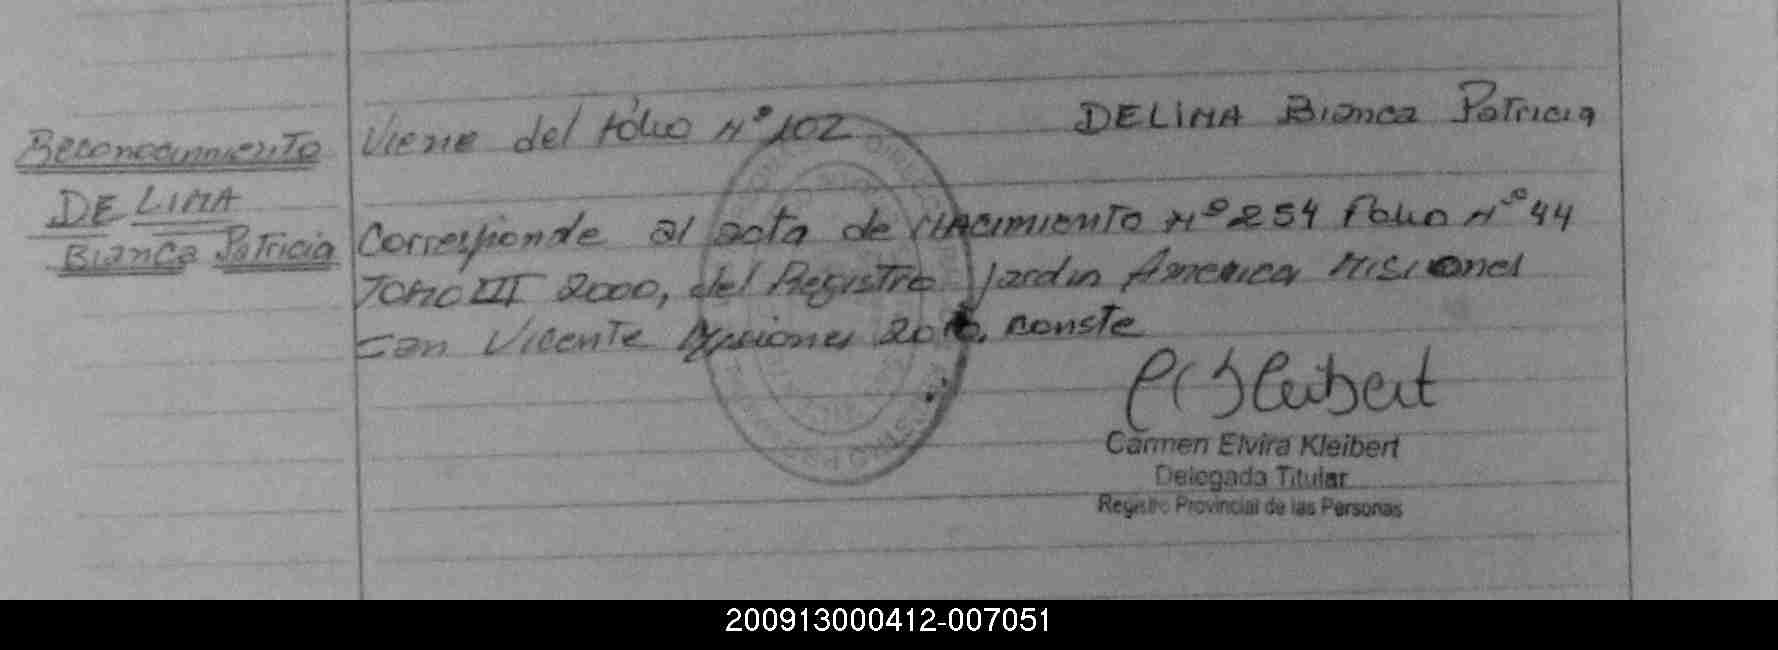 Reconocimiento
DE LIMA
Bianca Patricia
Viene del fólio Nº 102 DELIMA Bianca Patricia
Corresponde al acta de nacimiento Nº 254 folio Nº 44
Tomo III 2000, del Registro Jardin America Misiones
San Vicente Misiones 2010. conste
Carmen Elvira Kleibert
Delegada Titular
Registro Provincial de las Personas
200913000412-007051